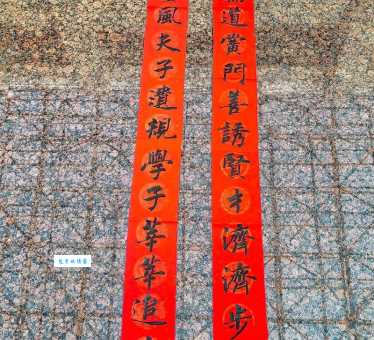 道當門善誘賢才濟濟步
風夫子遺規學子莘莘追